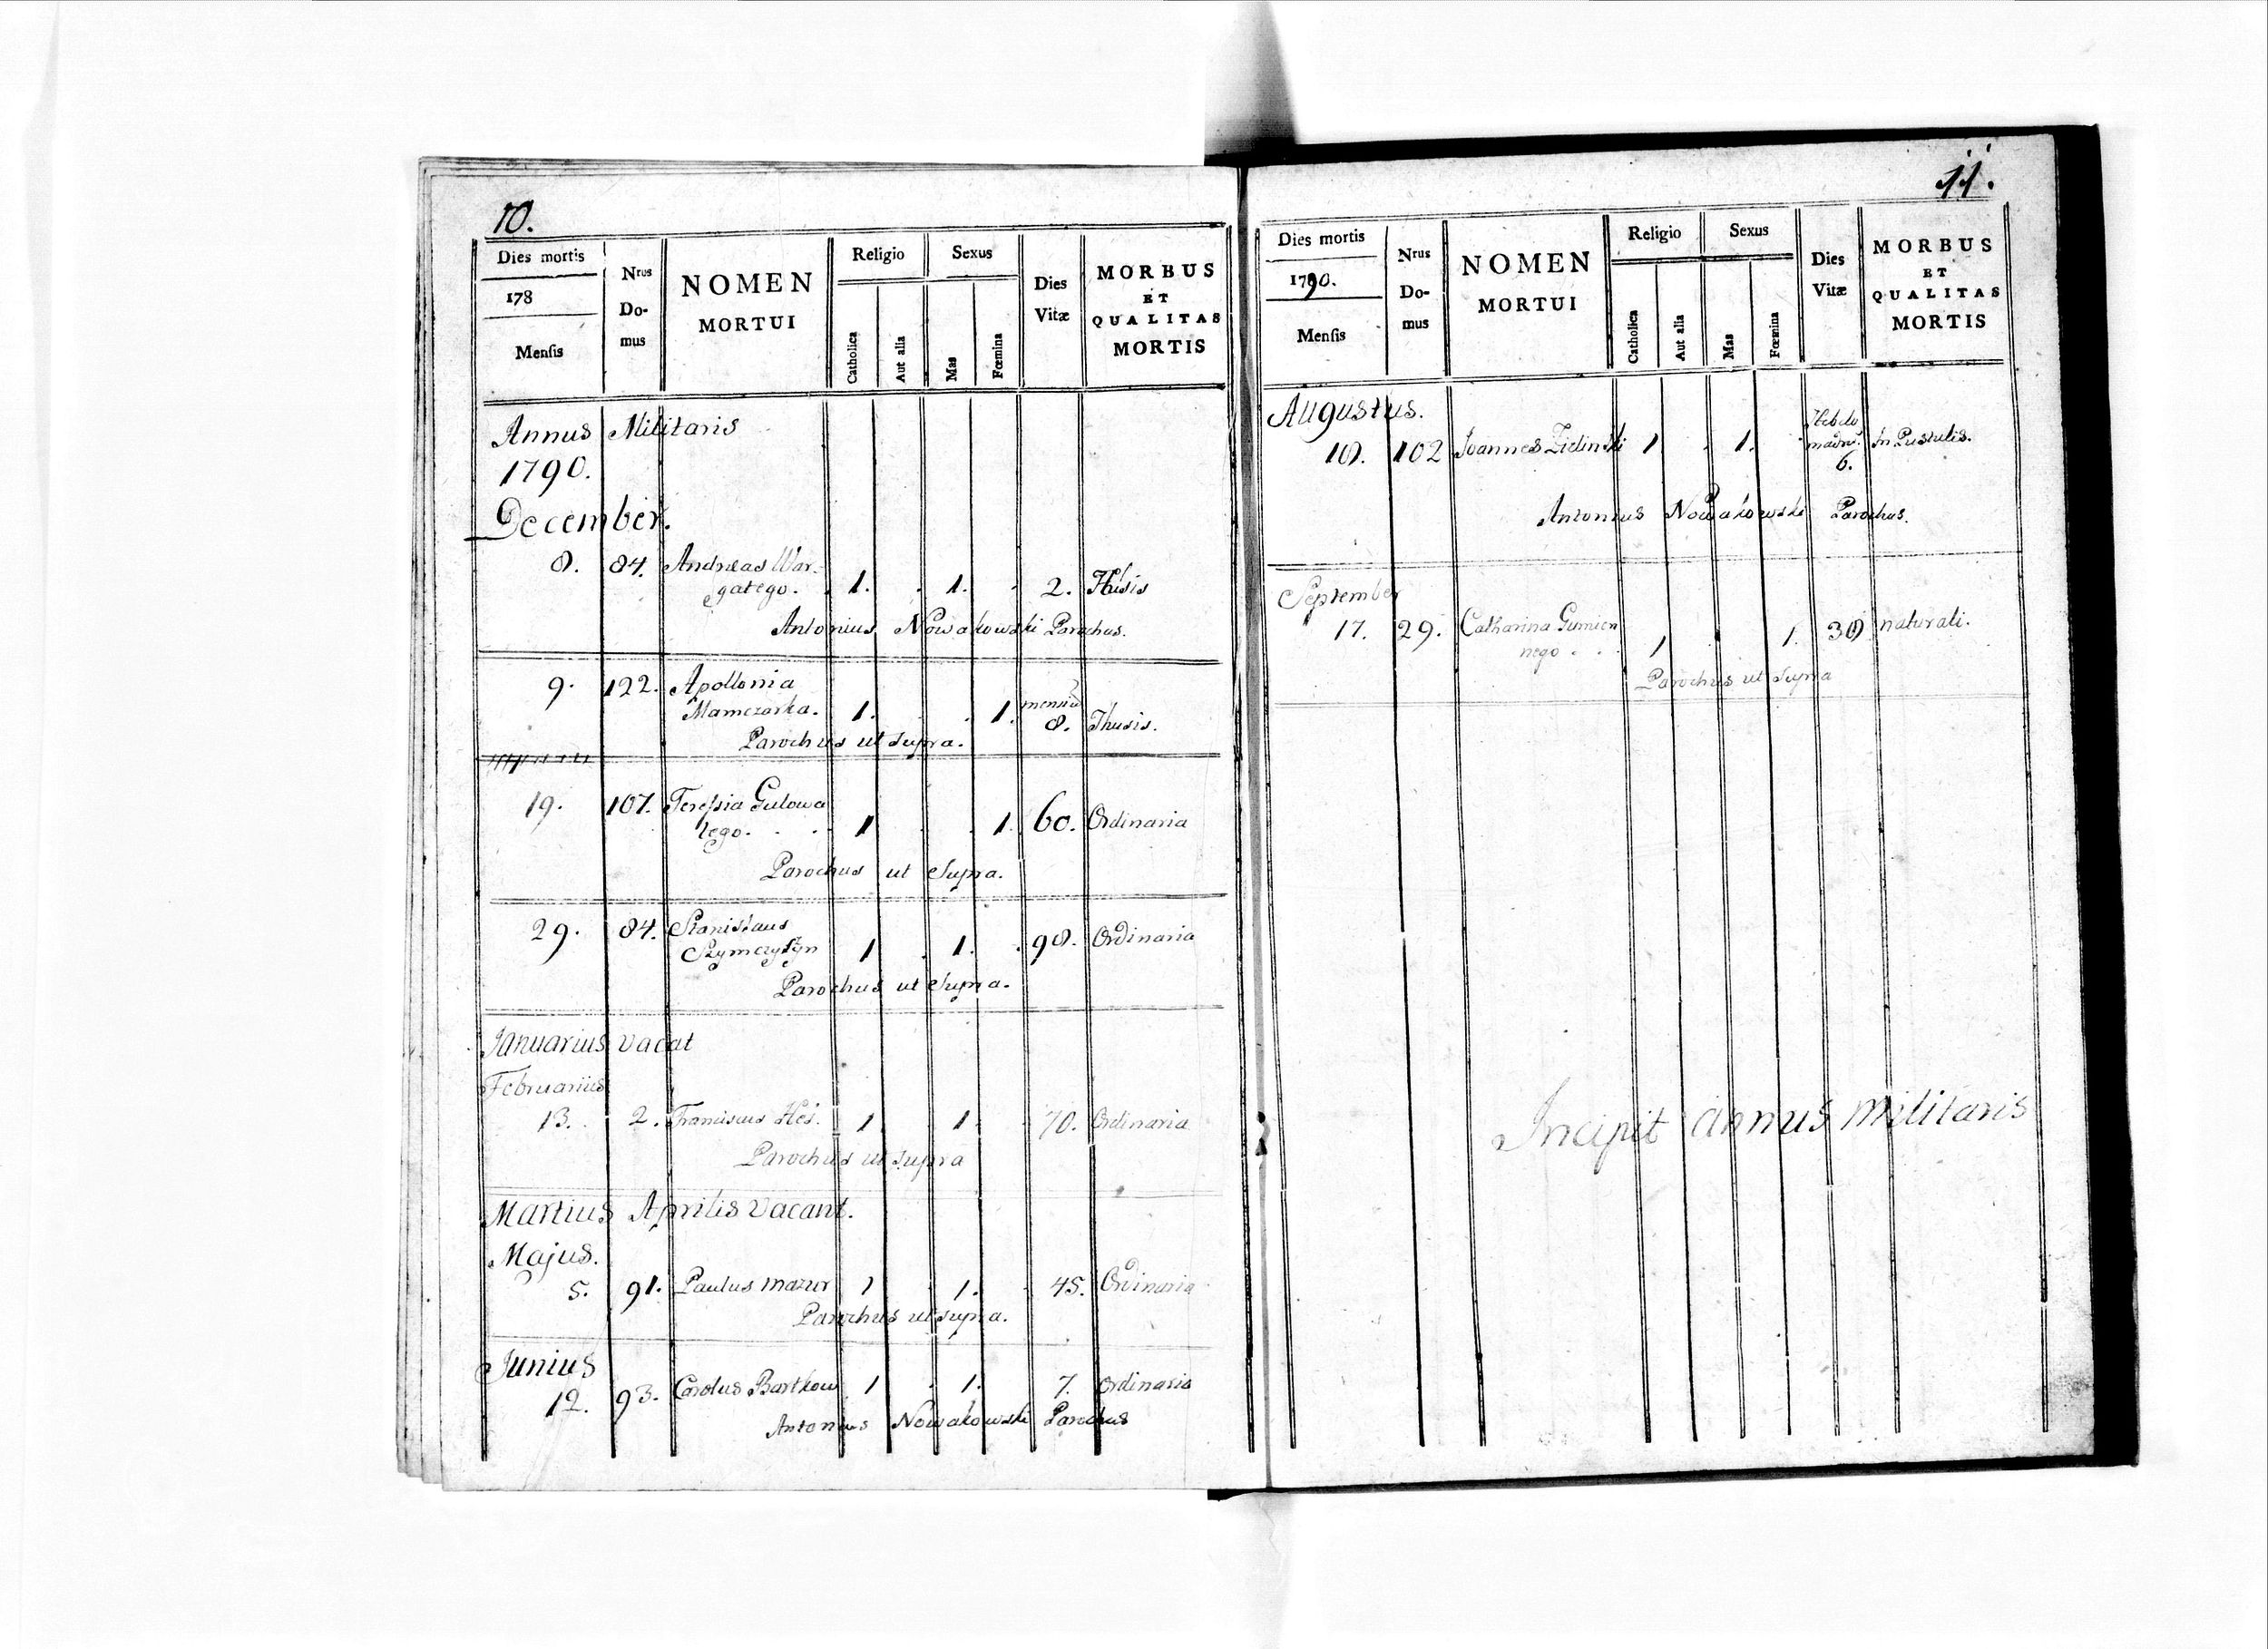 10.
Dies mortis
178
Menſis
Nrus
Do-
mus
NOMEN
MORTUI
Religio
Catholica
Aut alia
Sexus
Mas
Fœmina
Dies
Vitæ
MORBUS
ET
QUALITAS
MORTIS
Annus Militaris
1790.
December.
8. 84. Andreas War-
gatego. 1. 1. 2. Thisis
Antonius Nowakowski Parochus.
9. 122. Apollonia
Mamczarka. 1. 1. mensiū 8. Thusis.
Parochus ut supra.
19. 107. Teresia Gulowa
tego. 1 1. 60. Ordinaria
Parochus ut Supra.
29. 84. Stanislaus
Szymczyszyn 1 1. 98. Ordinaria
Parochus ut Supra.
Januarius vacat
Februarius
13. 2. Franciscus Hes. 1 1 70. Ordinaria
Parochus ut supra
Martius Aprilis vacant.
Majus.
5. 91. Paulus mazur 1 1. 45. Ordinaria
Parochus ut supra.
Junius
12. 93. Carolus Bartkow 1 1. 7. Ordinaria
Antonius Nowakowski Parochus
11.
Dies mortis
1790.
Menſis
Nrus
Do-
mus
NOMEN
MORTUI
Religio
Catholica
Aut alia
Sexus
Mas
Fœmina
Dies
Vitæ
MORBUS
ET
QUALITAS
MORTIS
Augustus.
18. 102 Joannes Zielinski 1 1. Hebdo
madar. In Pustulis.
6.
Antonius Nowakowski Parochus.
September
17. 29. Catharina Gumien
nego 1 1. 38 naturali.
Parochus ut supra
Incipit annus militaris